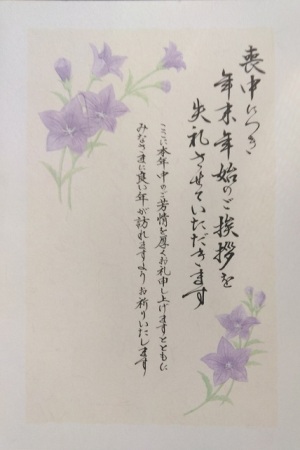 喪中につき
年末年始のご挨拶を
失礼させていただきます
ここに本年中のご芳情を厚くお礼申し上げますとともに
みなさまに良い年が訪れますようお祈りいたします